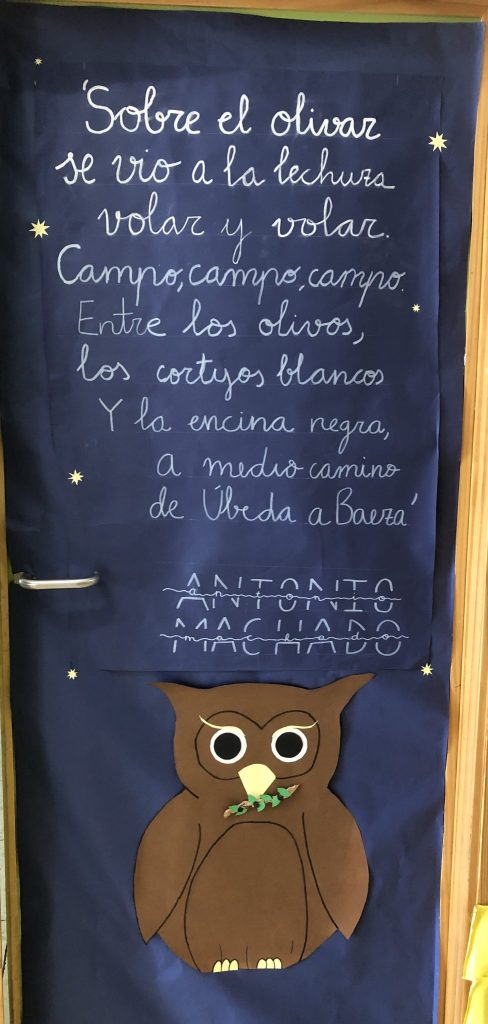 'Sobre el olivar
se vio a la lechuza
volar y volar.
Campo, campo, campo.
Entre los olivos,
los cortijos blancos
Y la encina negra,
a medio camino
de Úbeda a Baeza'
ANTONIO
antonio
MACHADO
machado